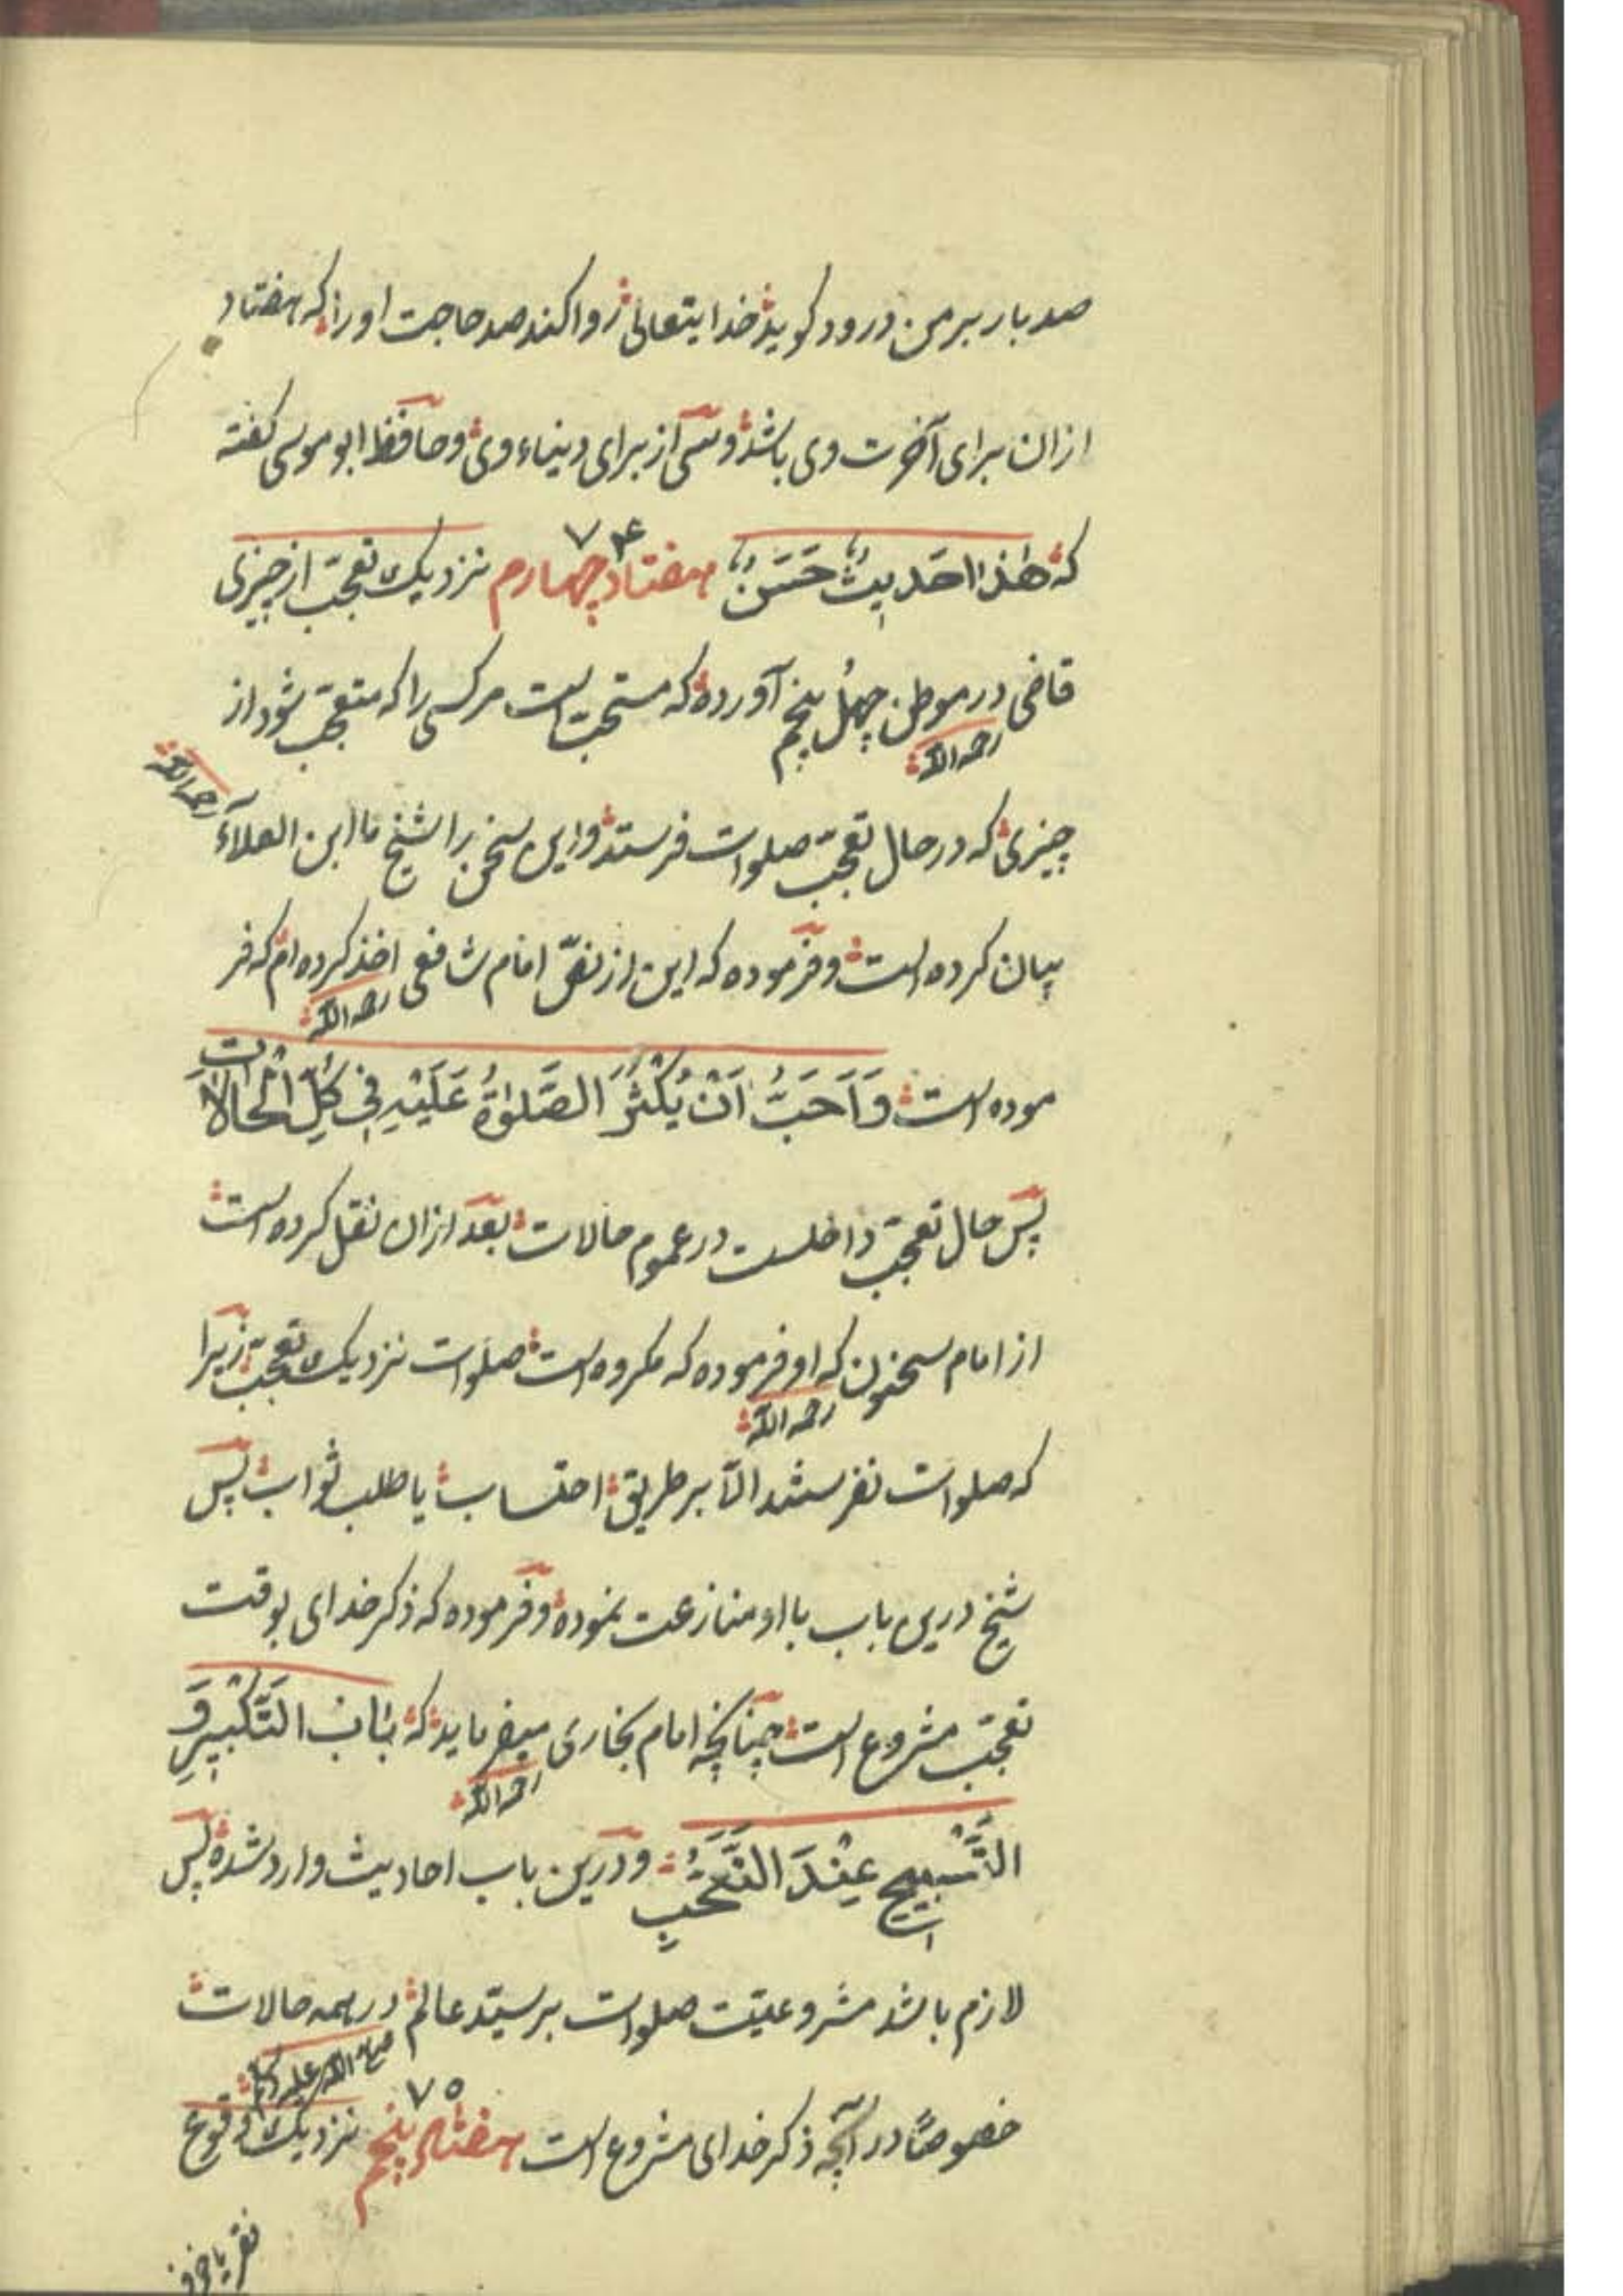 صد بار بر من درود گوید خدایتعالی روا کند صد حاجت او را که هفتاد
ازان برای آخرت وی باشد و سی از برای دنیاء وی و حافظ ابو موسی گفته
که هٰذا حَدِیثٌ حَسَنٌ هفتاد چهارم ۷۴ نزدیک تعجّب از چیزی
قاضی در موطن چهل پنجم آورده که مستحبّ است مر کسی را که متعجّب شود از
رحمه الله
چیزی که در حال تعجّب صلوات فرستد و این سخن را شیخ ما ابن العلآء رحمه الله
بیان کرده است و فرموده که این از نصّ امام شافعی اخذ کرده ام که فر
رحمه الله
موده است وَاَحَبُّ اَنْ یُکْثَرَ الصَّلوٰةُ عَلَیْهِ فِی کُلِّ الْحَالَاتِ
پس حال تعجّب داخلست در عموم حالات بعد ازان نقل کرده است
از امام سحنون که او فرموده که مکروه است صلوات نزدیک تعجّب زیرا
رحمه الله
که صلوات نفرستند الّا بر طریق احتساب یا طلب ثواب پس
شیخ درین باب با او منازعت نموده و فرموده که ذکر خدای بوقت
تعجّب مشروع است چنانچه امام بخاری میفرماید که بَابُ التَّکْبِیرِ وَ
رحمه الله
التَّسْبِیحِ عِنْدَ التَّعَجُّبِ و درین باب احادیث وارد شده پس
لازم باشد مشروعیّت صلوات بر سیّد عالم در همه حالات
صلی الله علیه وسلم
خصوصًا در آنچه ذکر خدای مشروع است هفتاد پنجم ۷۵ نزدیک وقوع